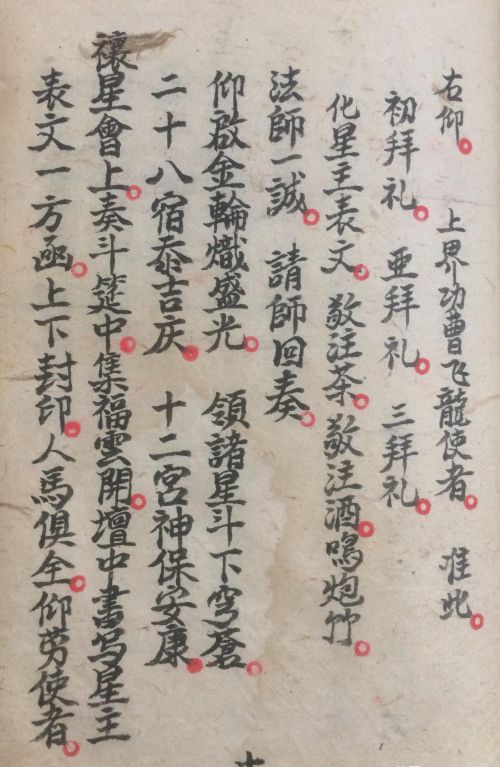 右仰。 上界功曹飞龍使者。 准此。
初拜礼。 亜拜礼。 三拜礼。
化星主表文。敬注茶。敬注酒。鳴炮竹。
法師一誠。 請師回奏。
仰啟金輪熾盛光。 領諸星斗下穹蒼。
二十八宿泰吉庆。 十二宮神保安康。
禳星會上。奏斗筵中。集福雲開。壇中書写星主
表文一方函。上下封印。人馬俱全。仰劳使者。